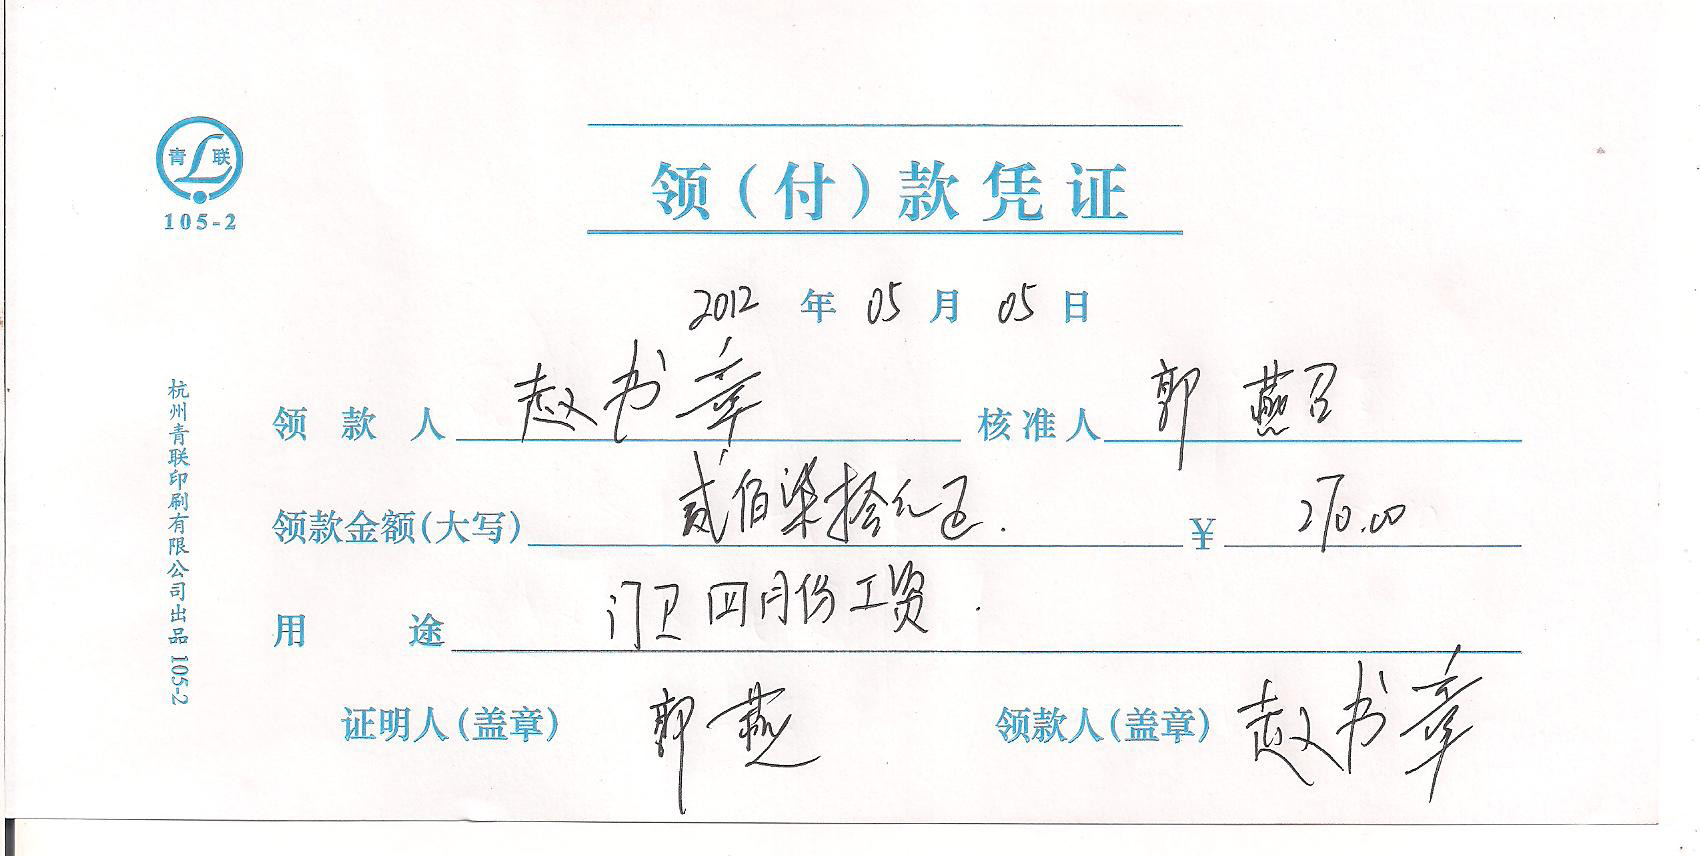 青 联
105-2
领（付）款凭证
2012 年 05 月 05 日
领款人 赵书章 核准人 郭燕召
领款金额(大写) 贰佰柒拾元正. ¥ 270.00
用途 门卫四月份工资.
证明人(盖章) 郭燕 领款人(盖章) 赵书章
杭州青联印刷有限公司出品 105-2